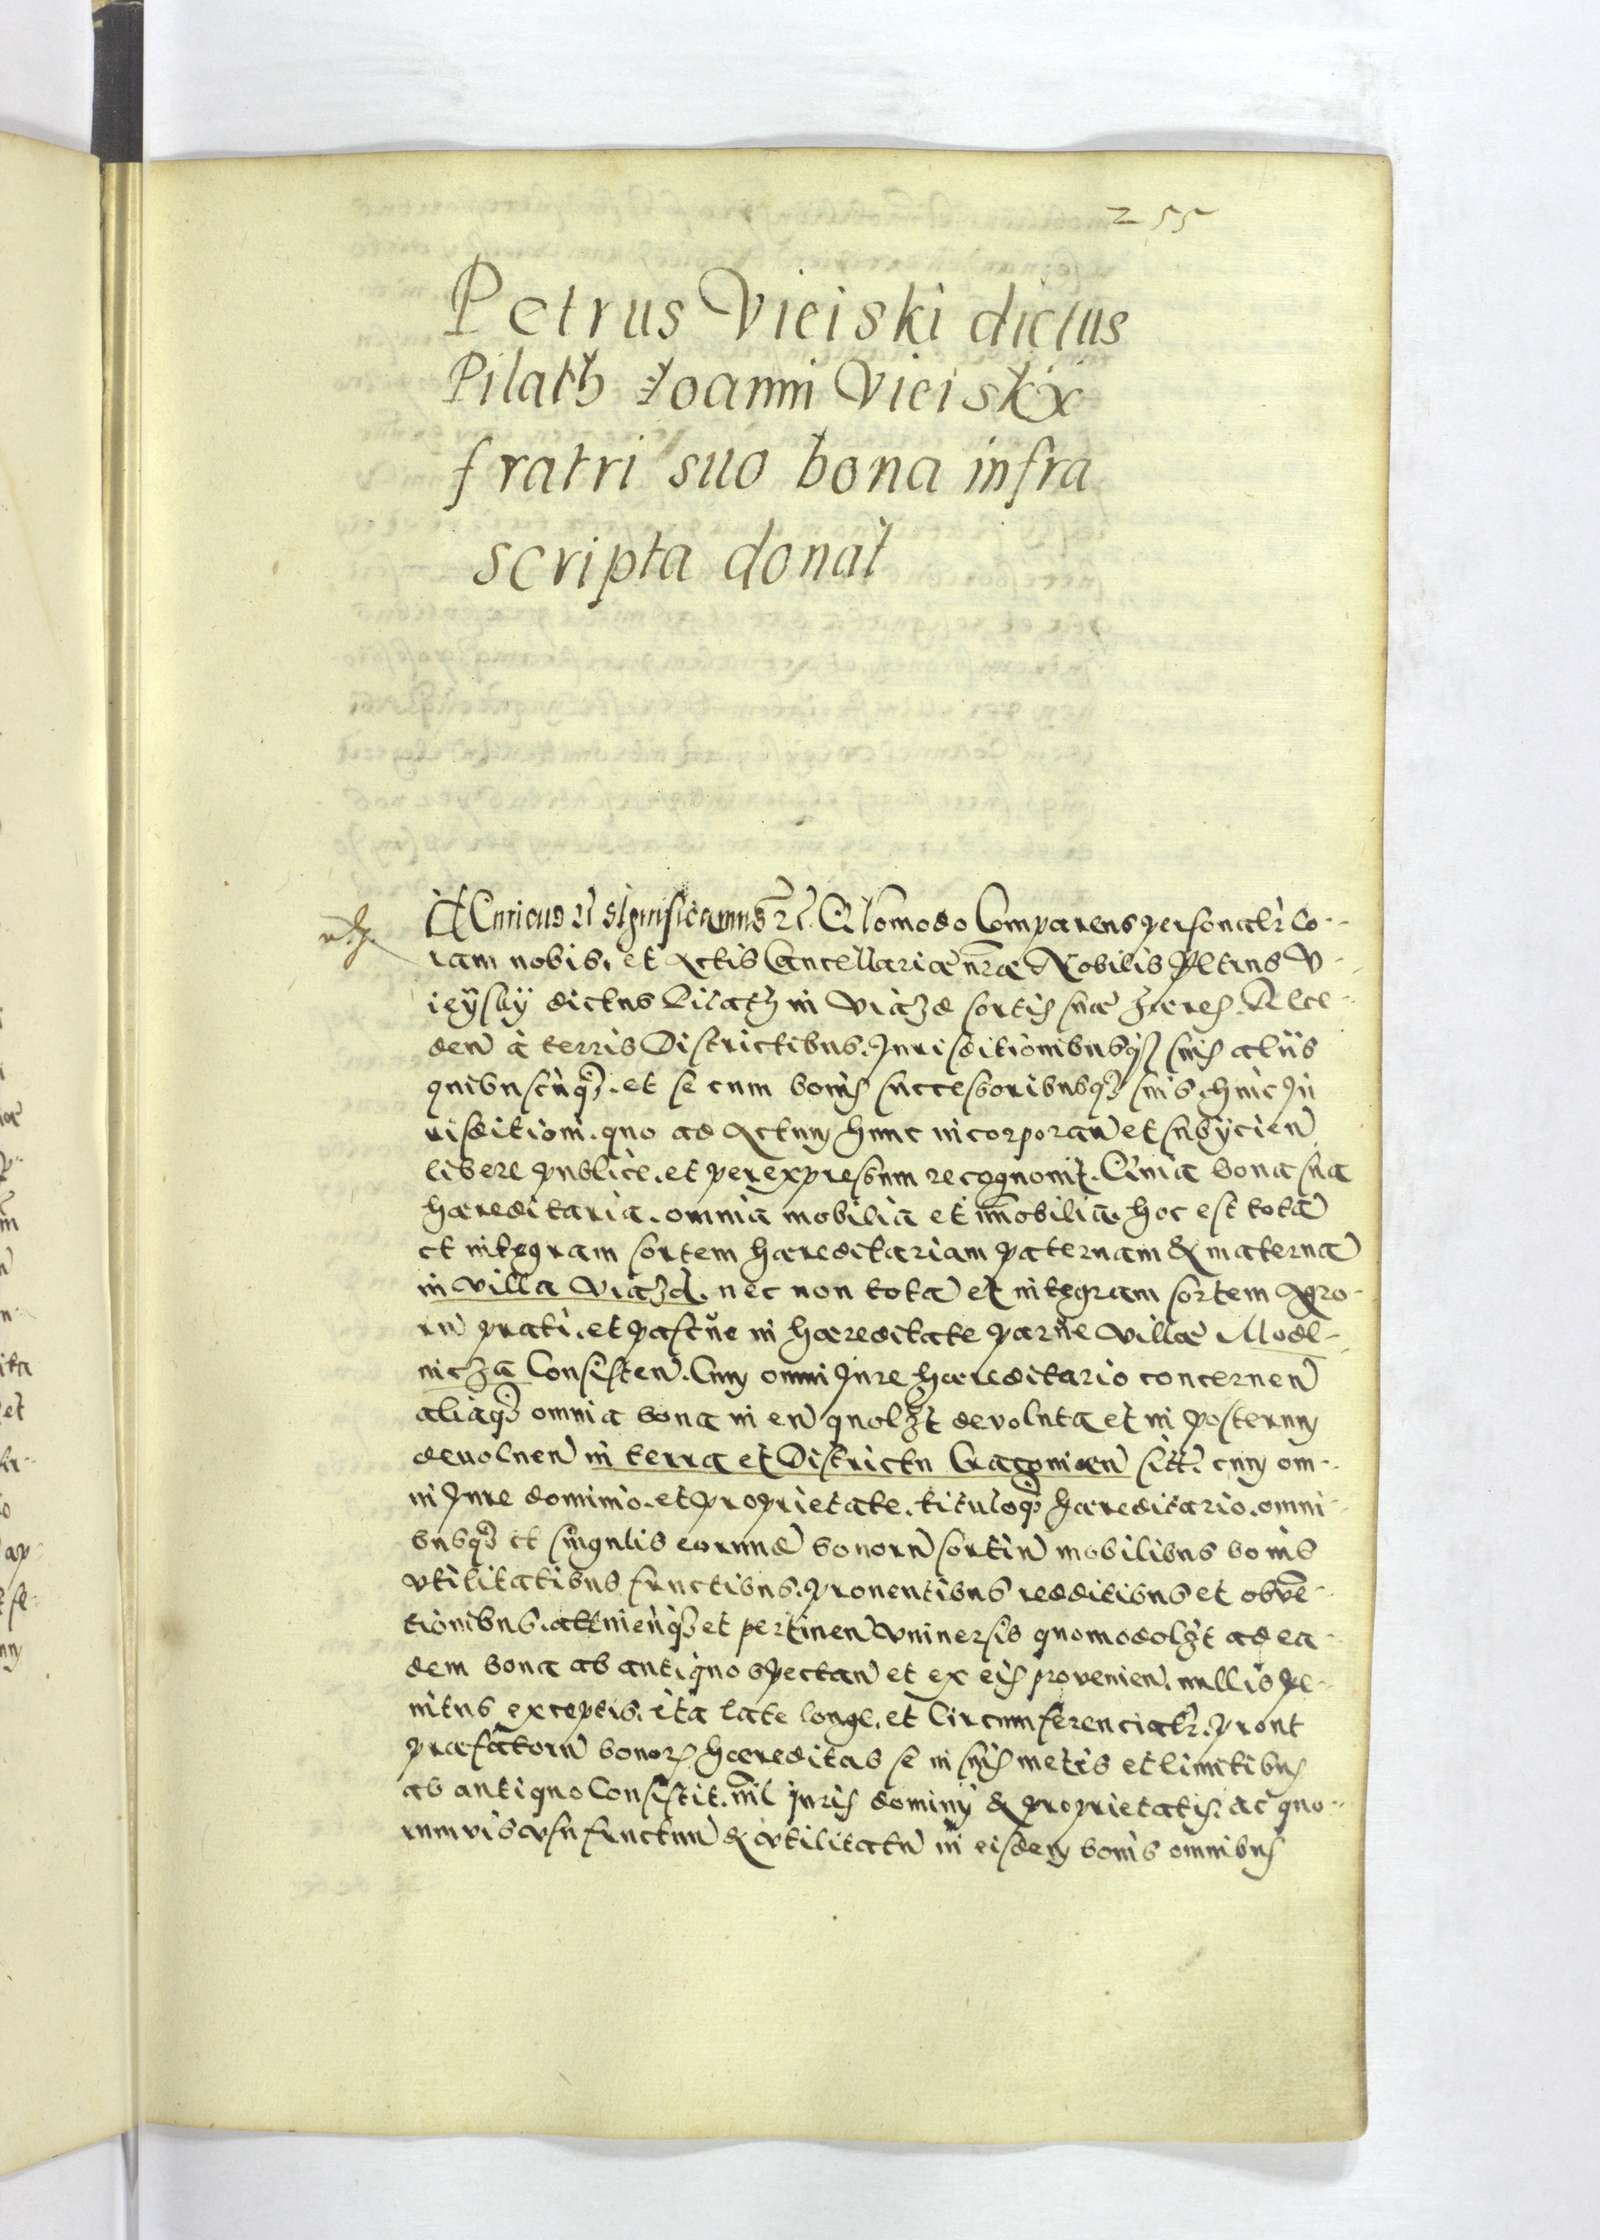 255
Petrus Vieiski dictus
Pilath Joanni Vieiskÿ
fratri suo bona infra
scripta donat
HEnricus etc significamus etc. Quomodo Comparens personalr co-
ram nobis, et Actis Cancellariæ nræ Nobilis Petrus V-
ieÿskÿ dictus Pilath in Viazd sortis suæ hæres. Rece-
den à terris Districtibus, Jurisditionibusq suis aliis
quibuscunq, et se cum bonis successoribusq suis, huic Ju
risditioni, quo ad Actum hunc incorporan et subÿcien
libere publice, et per expressum recognovit. Quia bona sua
hæreditaria, omnia mobilia et immobilia, hoc est totã
et integram sortem hæreditariam paternam & maternã
in villa Viazd, nec non totã et integram sortem Agro-
rũ prati, et pascue in hæreditate parve villæ Modl-
nicza Consisten. Cum omni Jure hæreditario concernen
aliaq omnia bona in eũ quolzt devoluta et in posterum
devoluen in terra et Districtu Cracovien sitt. cum om-
ni Jure dominio, et proprietate, tituloq hæreditario, omni-
busq et singulis eorundẽ bonorũ sortiũ mobilibus bonis
vtilitatibus fructibus, proventibus redditibus et obvẽ-
tionibus, attinenq et pertinen vniversis quomodolzt ad ea-
dem bona ab antiquo spectan et ex eis provenien, nullis pe-
nitus exceptis, ita late longe, et Circumferencialr, prout
præfatorũ bonor hæreditas se in suis metis et limitibus
ab antiquo Consistit, nil juris dominÿ & proprietatis, ac quo-
rumvis vsufructuũ & vtilitatũ in eisdem bonis omnibus